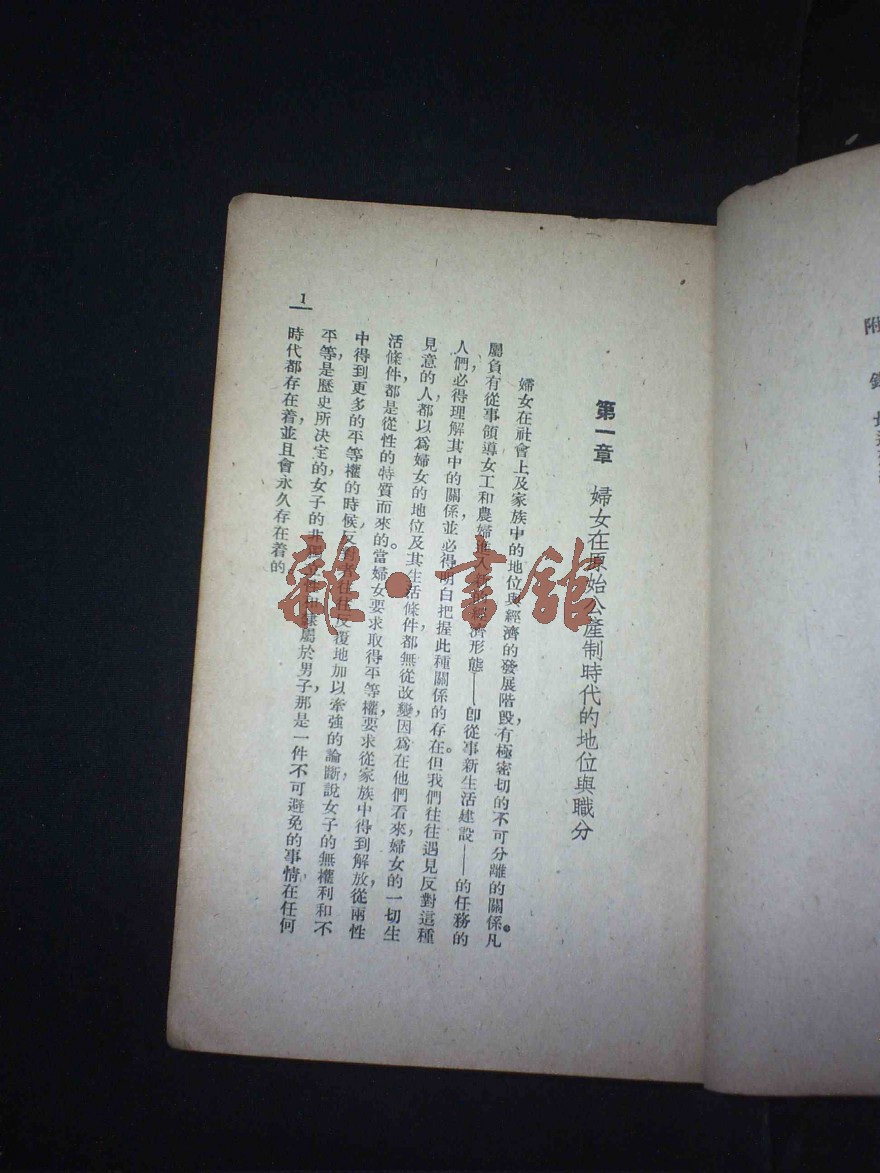 第一章　婦女在原始公產制時代的地位與職分
婦女在社會上及家族中的地位與經濟的發展階段，有極密切的不可分離的關係。凡
屬負有從事領導女工和農婦進入新的經濟形態——卽從事新生活建設——的任務的
人們，必得理解其中的關係，並必得明白把握此種關係的存在。但我們往往遇見反對這種
見意的人，都以爲婦女的地位及其生活條件，都無從改變，因爲在他們看來，婦女的一切生
活條件，都是從性的特質而來的。當婦女要求取得平等權，要求從家族中得到解放，從兩性
中得到更多的平等權的時候，反對者往往反復地加以牽強的論斷，說女子的無權利和不
平等，是歷史所決定的，女子的非獨立性和隸屬於男子，那是一件不可避免的事情，在任何
時代都存在着，並且會永久存在着的
1
附
雜·書館